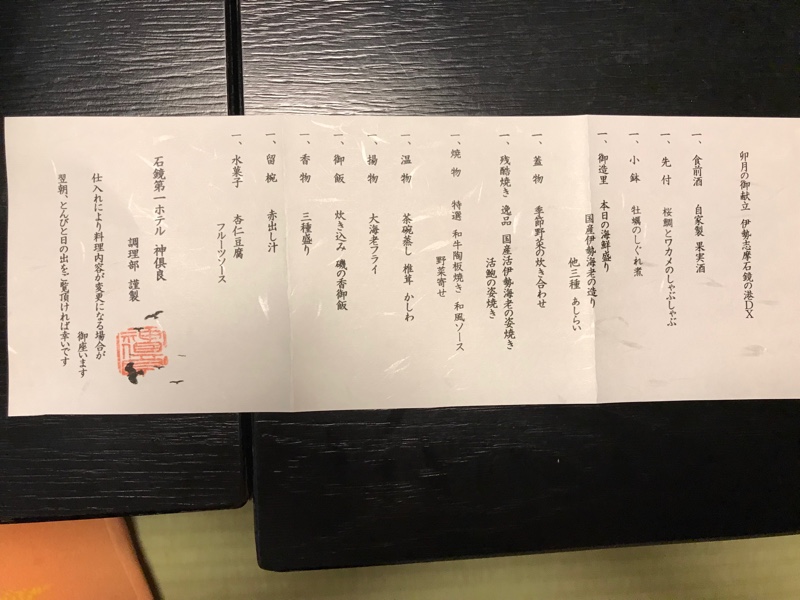 卯月の御献立 伊勢志摩石鏡の港DX
一、食前酒 自家製 果実酒
一、先付 桜鯛とワカメのしゃぶしゃぶ
一、小鉢 牡蠣のしぐれ煮
一、御造里 本日の海鮮盛り
国産伊勢海老の造り
他三種 あしらい
一、蓋物 季節野菜の炊き合わせ
一、残酷焼き 逸品 国産活伊勢海老の姿焼き
活鮑の姿焼き
一、焼物 特選 和牛陶板焼き 和風ソース
野菜寄せ
一、温物 茶碗蒸し 椎茸 かしわ
一、揚物 大海老フライ
一、御飯 炊き込み 磯の香御飯
一、香物 三種盛り
一、留椀 赤出し汁
一、水菓子 杏仁豆腐
フルーツソース
石鏡第一ホテル 神倶良
調理部 謹製
仕入れにより料理内容が変更になる場合が
御座います
翌朝、とんびと日の出をご覧頂ければ幸いです